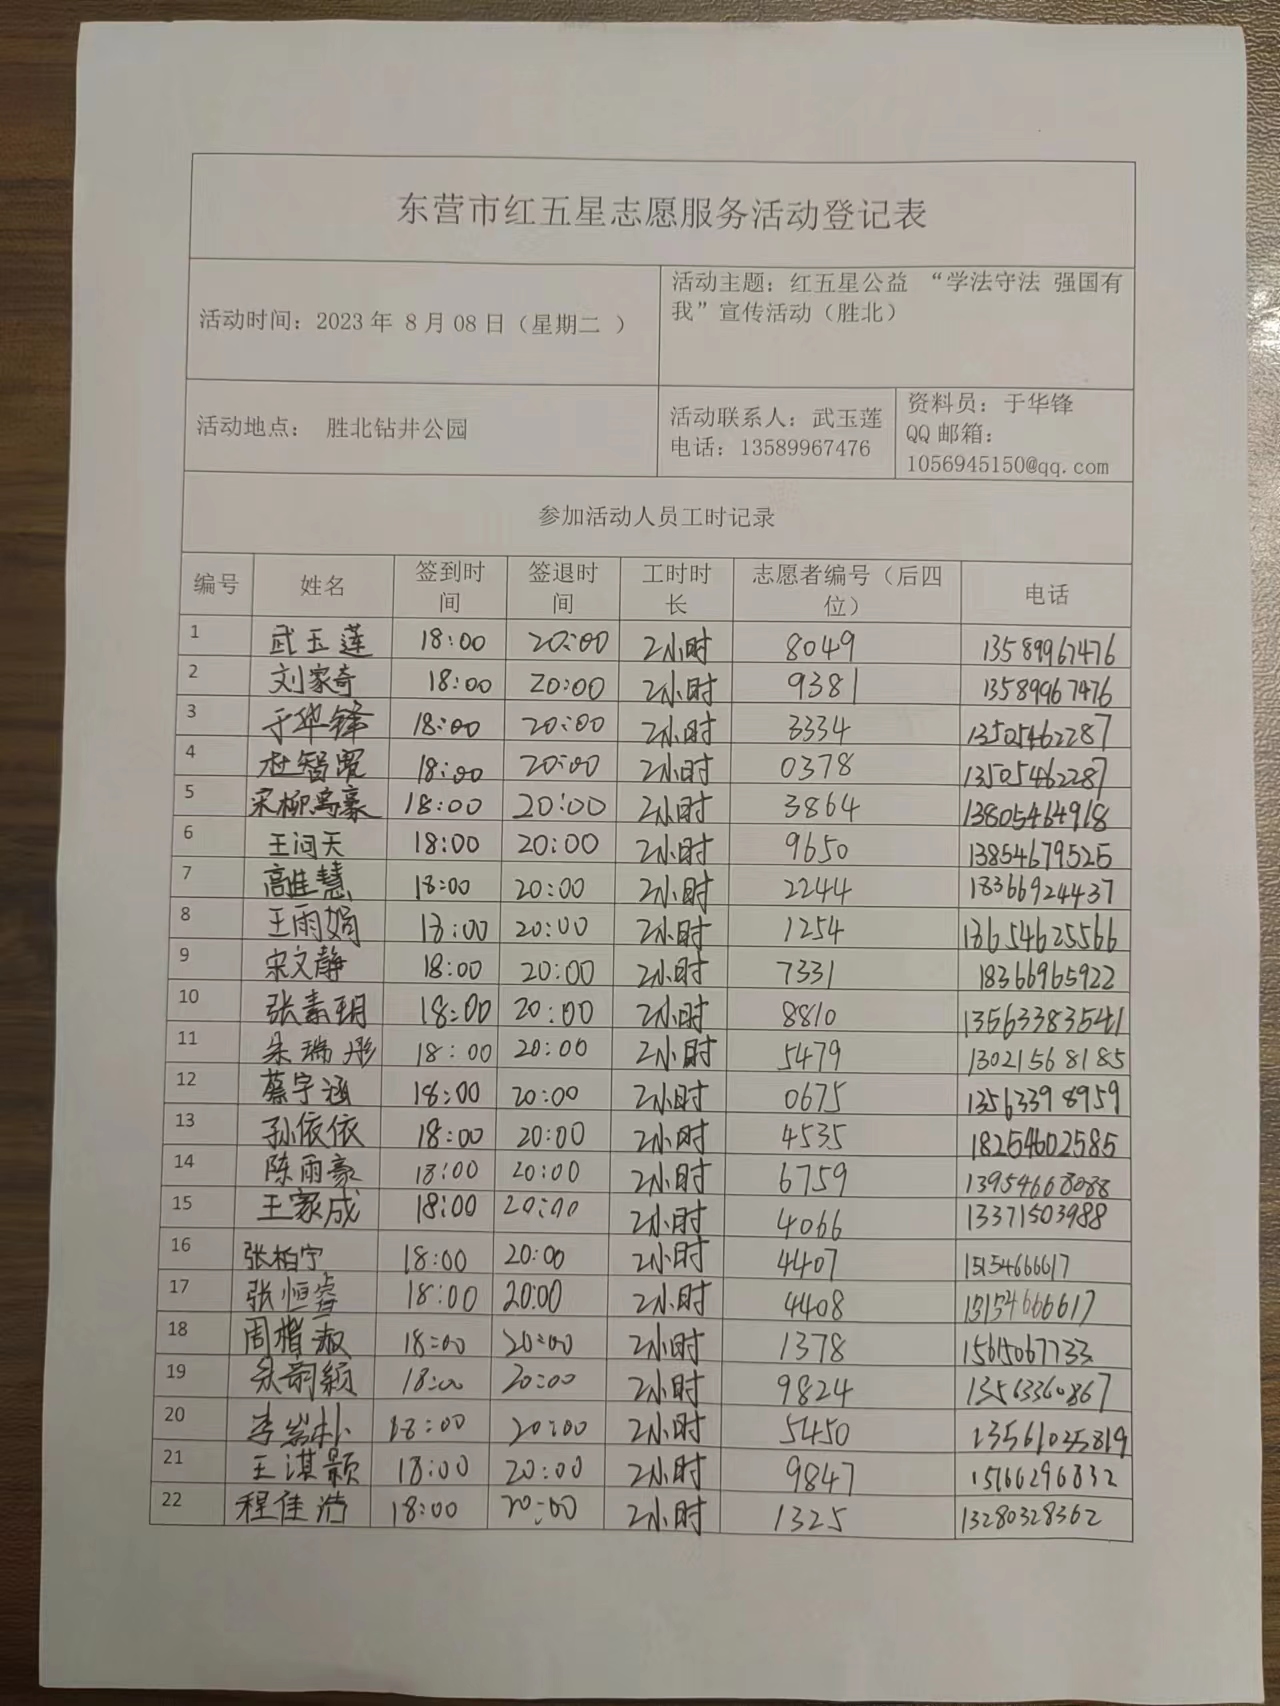 东营市红五星志愿服务活动登记表
活动时间：2023年 8月08日（星期二 ）
活动主题：红五星公益 “学法守法 强国有
我”宣传活动（胜北）
活动地点： 胜北钻井公园
活动联系人：武玉莲
电话：13589967476
资料员：于华锋
QQ邮箱：
1056945150@qq.com
参加活动人员工时记录
编号 姓名 签到时间 签退时间 工时时长 志愿者编号（后四位） 电话
1 武玉莲 18:00 20:00 2小时 8049 13589967476
2 刘家奇 18:00 20:00 2小时 9381 13589967476
3 于华锋 18:00 20:00 2小时 3334 13505462287
4 杜智 18:00 20:00 2小时 0378 13505462287
5 宋柳 豪 18:00 20:00 2小时 3864 13805464918
6 王问天 18:00 20:00 2小时 9650 13854679525
7 高佳慧 18:00 20:00 2小时 2244 18366924437
8 王雨娟 18:00 20:00 2小时 1254 18654625566
9 宋文静 18:00 20:00 2小时 7331 18366965922
10 张素玥 18:00 20:00 2小时 8810 13563383541
11 朱瑞彤 18:00 20:00 2小时 5479 13021568185
12 蔡宇涵 18:00 20:00 2小时 0675 13563398959
13 孙依依 18:00 20:00 2小时 4535 18254602585
14 陈雨豪 18:00 20:00 2小时 6759 13954668088
15 王家成 18:00 20:00 2小时 4066 13371503988
16 张柏宁 18:00 20:00 2小时 4407 15154666617
17 张恒睿 18:00 20:00 2小时 4408 15154666617
18 周楷淑 18:00 20:00 2小时 1378 15615067733
19 韵颖 18:00 20:00 2小时 9824 13563360867
20 李 朴 18:00 20:00 2小时 5450 13561025819
21 王淇颢 18:00 20:00 2小时 9847 15166296832
22 程佳浩 18:00 20:00 2小时 1325 13280328362